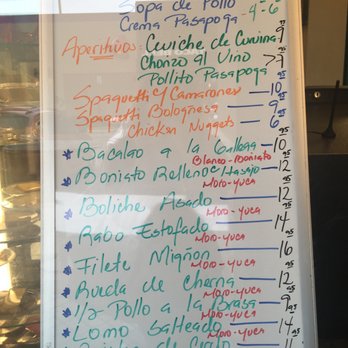 Sopa de Pollo
Crema Pasapoga - 4-6
Aperitivos Ceviche de Corvina 9
Chorizo al Vino > 7
Pollito Pasapoga
Spaguetti y Camarones — 10.95
Spaguetti Bolognesa — 9.95
Chicken Nuggets — 6.95
* Bacalao a la Gallega — 10.95
Blanco-Boniato
* Boniato Relleno c/ Tasajo — 12.95
Moro-yuca
* Boliche Asado — 12.95
Moro-yuca
* Rabo Estofado — 14.95
Moro-yuca
* Filete Mignon — 16.95
Moro-yuca
* Rueda de Cherna — 12.95
Moro-yuca
* 1/2 Pollo a la Brasa — 9.95
Moro-yuca
* Lomo Salteado — 14.95
Moro-yuca
de Cerdo — 11